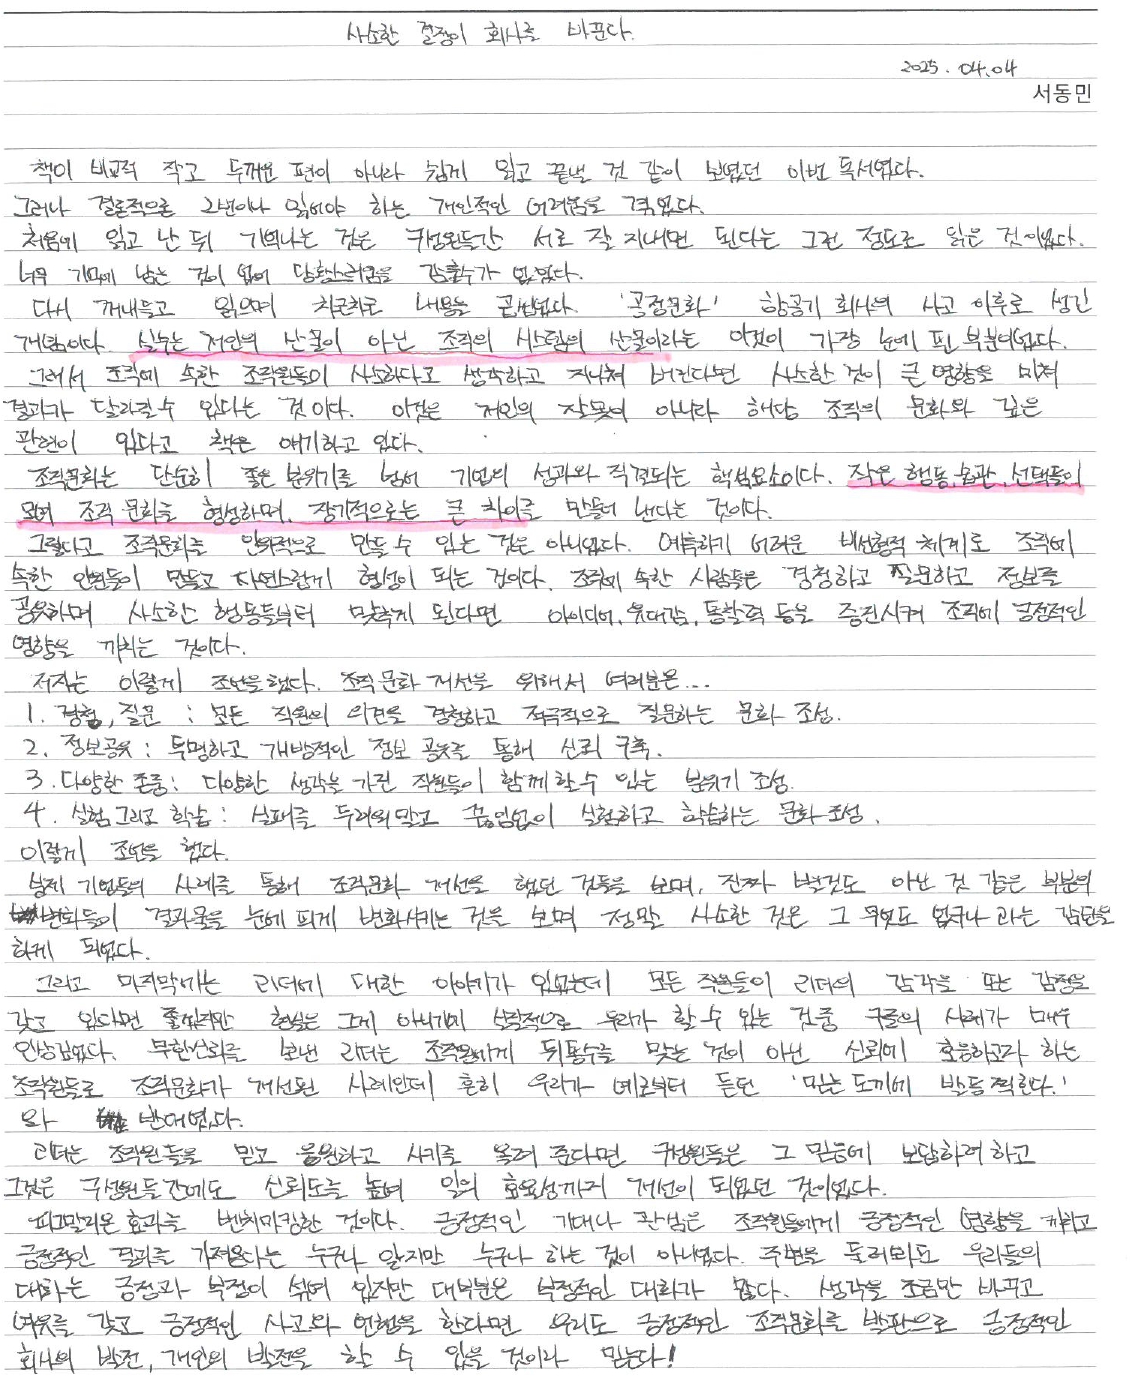 사소한 결정이 회사를 바꾼다.
2025. 04.04
서동민
책이 비교적 작고 두꺼운 편이 아니라 쉽게 읽고 끝낼 것 같이 보였던 이번 독서였다.
그러나 결론적으론 2번이나 읽어야 하는 개인적인 어려움을 겪었다.
처음에 읽고 난 뒤 기억나는 것은 구성원들간 서로 잘 지내면 된다는 그런 정도로 읽은 것이었다.
너무 기억에 남는 것이 없어 당황스러움을 감출수가 없었다.
다시 꺼내들고 읽으며 차근차근 내용을 곱씹었다. '공정문화' 항공기 회사의 사고 이후로 생긴
개념이다. 실수는 개인의 산물이 아닌 조직의 시스템의 산물이라는 이것이 가장 눈에 띈 부분이었다.
그래서 조직에 속한 조직원들이 사소하다고 생각하고 지나쳐 버린다면 사소한 것이 큰 영향을 미쳐
결과가 달라질수 있다는 것 이다. 이것은 개인의 잘못이 아니라 해당 조직의 문화와 깊은
관련이 있다고 책은 얘기하고 있다.
조직문화는 단순히 좋은 분위기를 넘어 기업의 성과와 직결되는 핵심요소이다. 작은 행동, 습관, 선택들이
모여 조직 문화를 형성하며, 장기적으로는 큰 차이를 만들어 낸다는 것이다.
그렇다고 조직문화를 인위적으로 만들 수 있는 것은 아니었다. 예측하기 어려운 비선형적 체계로 조직에
속한 인원들이 만들고 자연스럽게 형성이 되는 것이다. 조직에 속한 사람들은 경청하고 질문하고 정보를
공유하며 사소한 행동들부터 맞춰가게 된다면 아이디어, 유대감, 통찰력 등을 증진시켜 조직에 긍정적인
영향을 끼치는 것이다.
저자는 이렇게 조언을 했다. 조직 문화 개선을 위해서 여러분은...
1. 경청, 질문 : 모든 직원의 의견을 경청하고 적극적으로 질문하는 문화 조성.
2. 정보공유 : 투명하고 개방적인 정보 공유를 통해 신뢰 구축.
3. 다양한 존중 : 다양한 생각을 가진 직원들이 함께 할 수 있는 분위기 조성.
4. 실험 그리고 학습 : 실패를 두려워 말고 끊임없이 실험하고 학습하는 문화 조성.
이렇게 조언을 했다.
실제 기업들의 사례를 통해 조직문화 개선을 했던 것들을 보며, 진짜 별것도 아닌 것 같은 부분의
변화들이 결과물을 눈에 띄게 변화시키는 것을 보며 정말 사소한 것은 그 무엇도 없구나 라는 감탄을
하게 되었다.
그리고 마지막에는 리더에 대한 이야기가 있었는데 모든 직원들이 리더의 감각을 또는 감정을
갖고 있다면 좋겠지만 현실은 그게 아니기에 실질적으로 우리가 할 수 있는 것중 구글의 사례가 매우
인상깊었다. 무한신뢰를 보낸 리더는 조직원에게 뒤통수를 맞는 것이 아닌 신뢰에 호응하고자 하는
조직원들로 조직문화가 개선된 사례인데 흔히 우리가 예로부터 듣던 '믿는 도끼에 발등 찍힌다.'
와 반대였다.
리더는 조직원들을 믿고 응원하고 사기를 올려 준다면 구성원들은 그 믿음에 보답하려 하고
그것은 구성원들간에도 신뢰도를 높여 일의 효율성까지 개선이 되었던 것이었다.
피그말리온 효과를 벤치마킹한 것이다. 긍정적인 기대나 관심은 조직원들에게 긍정적인 영향을 끼치고
긍정적인 결과를 가져온다는 누구나 알지만 누구나 하는 것이 아니었다. 주변을 둘러봐도 우리들의
대화는 긍정과 부정이 섞여 있지만 대부분은 부정적인 대화가 많다. 생각을 조금만 바꾸고
여유를 갖고 긍정적인 사고와 언행을 한다면 우리도 긍정적인 조직문화를 발판으로 긍정적인
회사의 발전, 개인의 발전을 할 수 있을 것이라 믿는다!